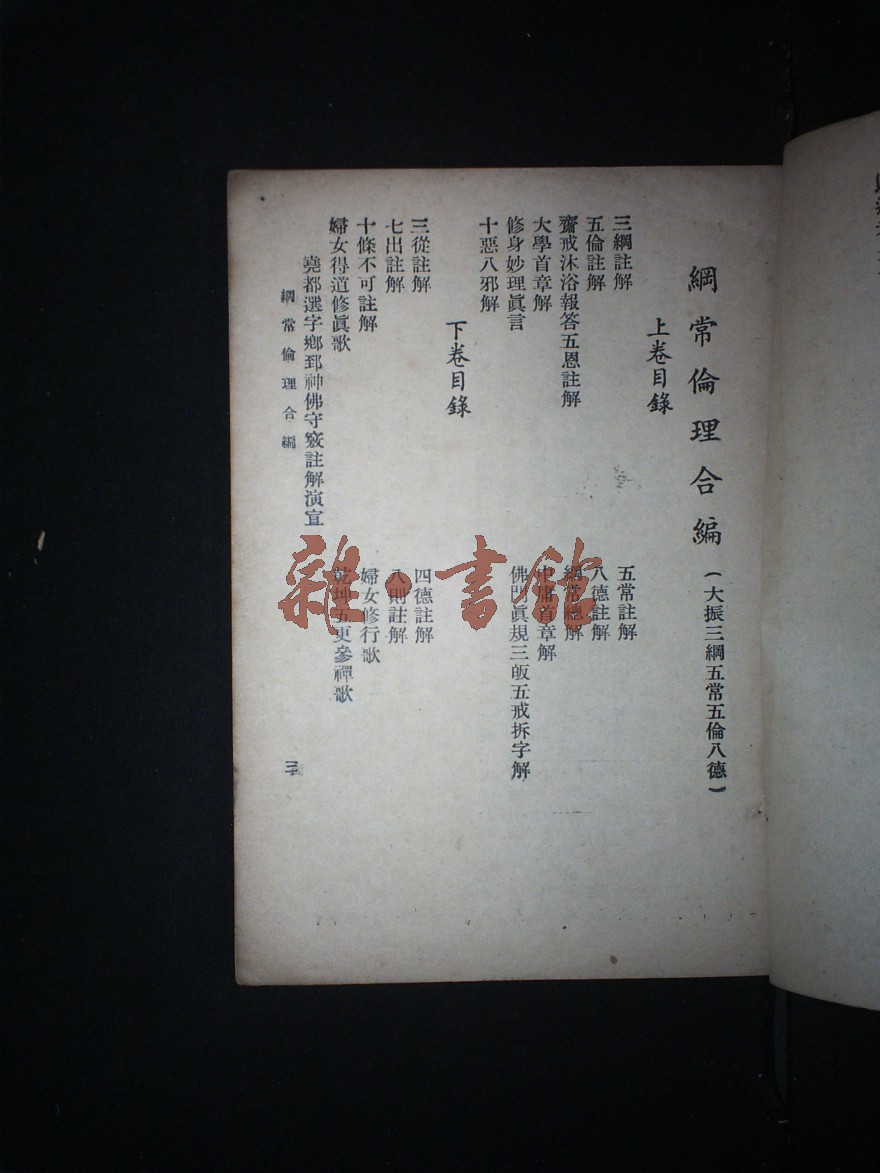 綱常倫理合編（大振三綱五常五倫八德）
上卷目錄
三綱註解　五常註解
五倫註解　八德註解
齋戒沐浴報答五恩註解　綱常總解
大學首章解　中庸首章解
修身妙理眞言　佛門眞規三皈五戒拆字解
十惡八邪解
下卷目錄
三從註解　四德註解
七出註解　八則註解
十條不可註解　婦女修行歌
婦女得道修眞歌　乾坤五更參禪歌
堯都選字鄉郅神佛守竅註解演宣
綱常倫理合編　三
雜·書館